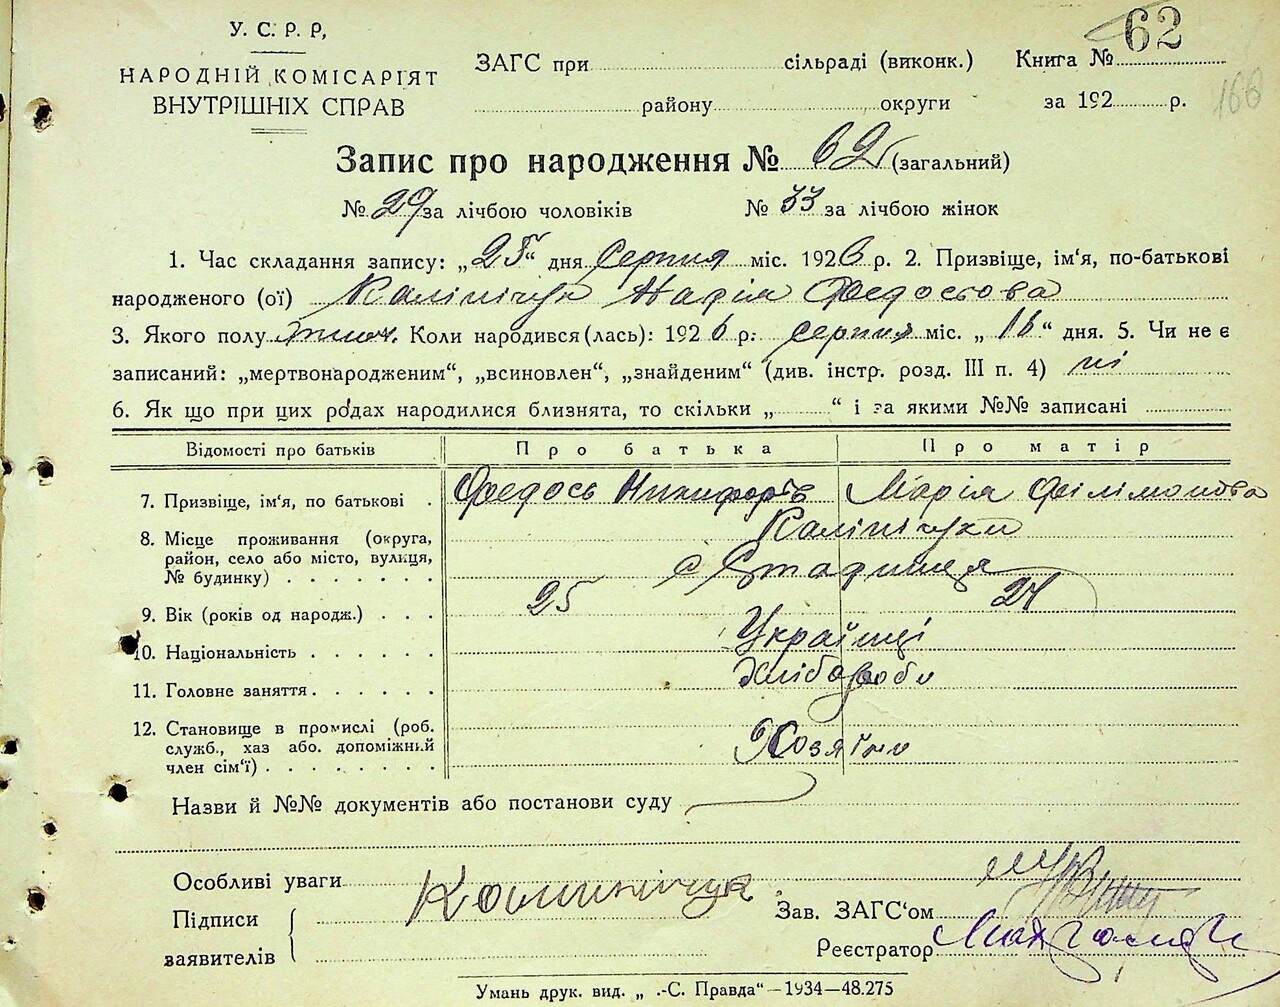 У. С. Р. Р,
НАРОДНІЙ КОМІСАРІЯТ
ВНУТРІШНІХ СПРАВ
ЗАГС при сільраді (виконк.) Книга № 62
району округи за 192 р. 160
Запис про народження № 62 (загальний)
№ 29 за лічбою чоловіків № 33 за лічбою жінок
1. Час складання запису: „25“ дня Серпня міс. 1926 р. 2. Призвіще, ім'я, по-батькові
народженого (ої) Калінічук Надія Федосьова
3. Якого полу жіноч. Коли народився (лась): 1926 р. серпня міс. „16“ дня. 5. Чи не є
записаний: „мертвонародженим“, „всиновлен“, „знайденим“ (див. інстр. розд. III п. 4) ні
6. Як що при цих родах народилися близнята, то скільки „ “ і за якими №№ записані
Відомості про батьків Про батька Про матір
7. Призвіще, ім'я, по батькові . Федось Никифорів Марія Филімонова
Калінічуки
8. Місце проживання (округа,
район, село або місто, вулиця,
№ будинку) . . . . . . . с Стадниця
9. Вік (років од народж.) . . . 25 24
10. Національність . . . . . . Українці
11. Головне заняття . . . . . . Хлібороби
12. Становище в промислі (роб.
служб., хаз або. допоміжний
член сім'ї) . . . . . . . . Хозяїни
Назви й №№ документів або постанови суду
Особливі уваги
Підписи
заявителів
Калинічук
Зав. ЗАГС'ом
Реєстратор
Умань друк. вид. „ .-С. Правда“—1934—48.275